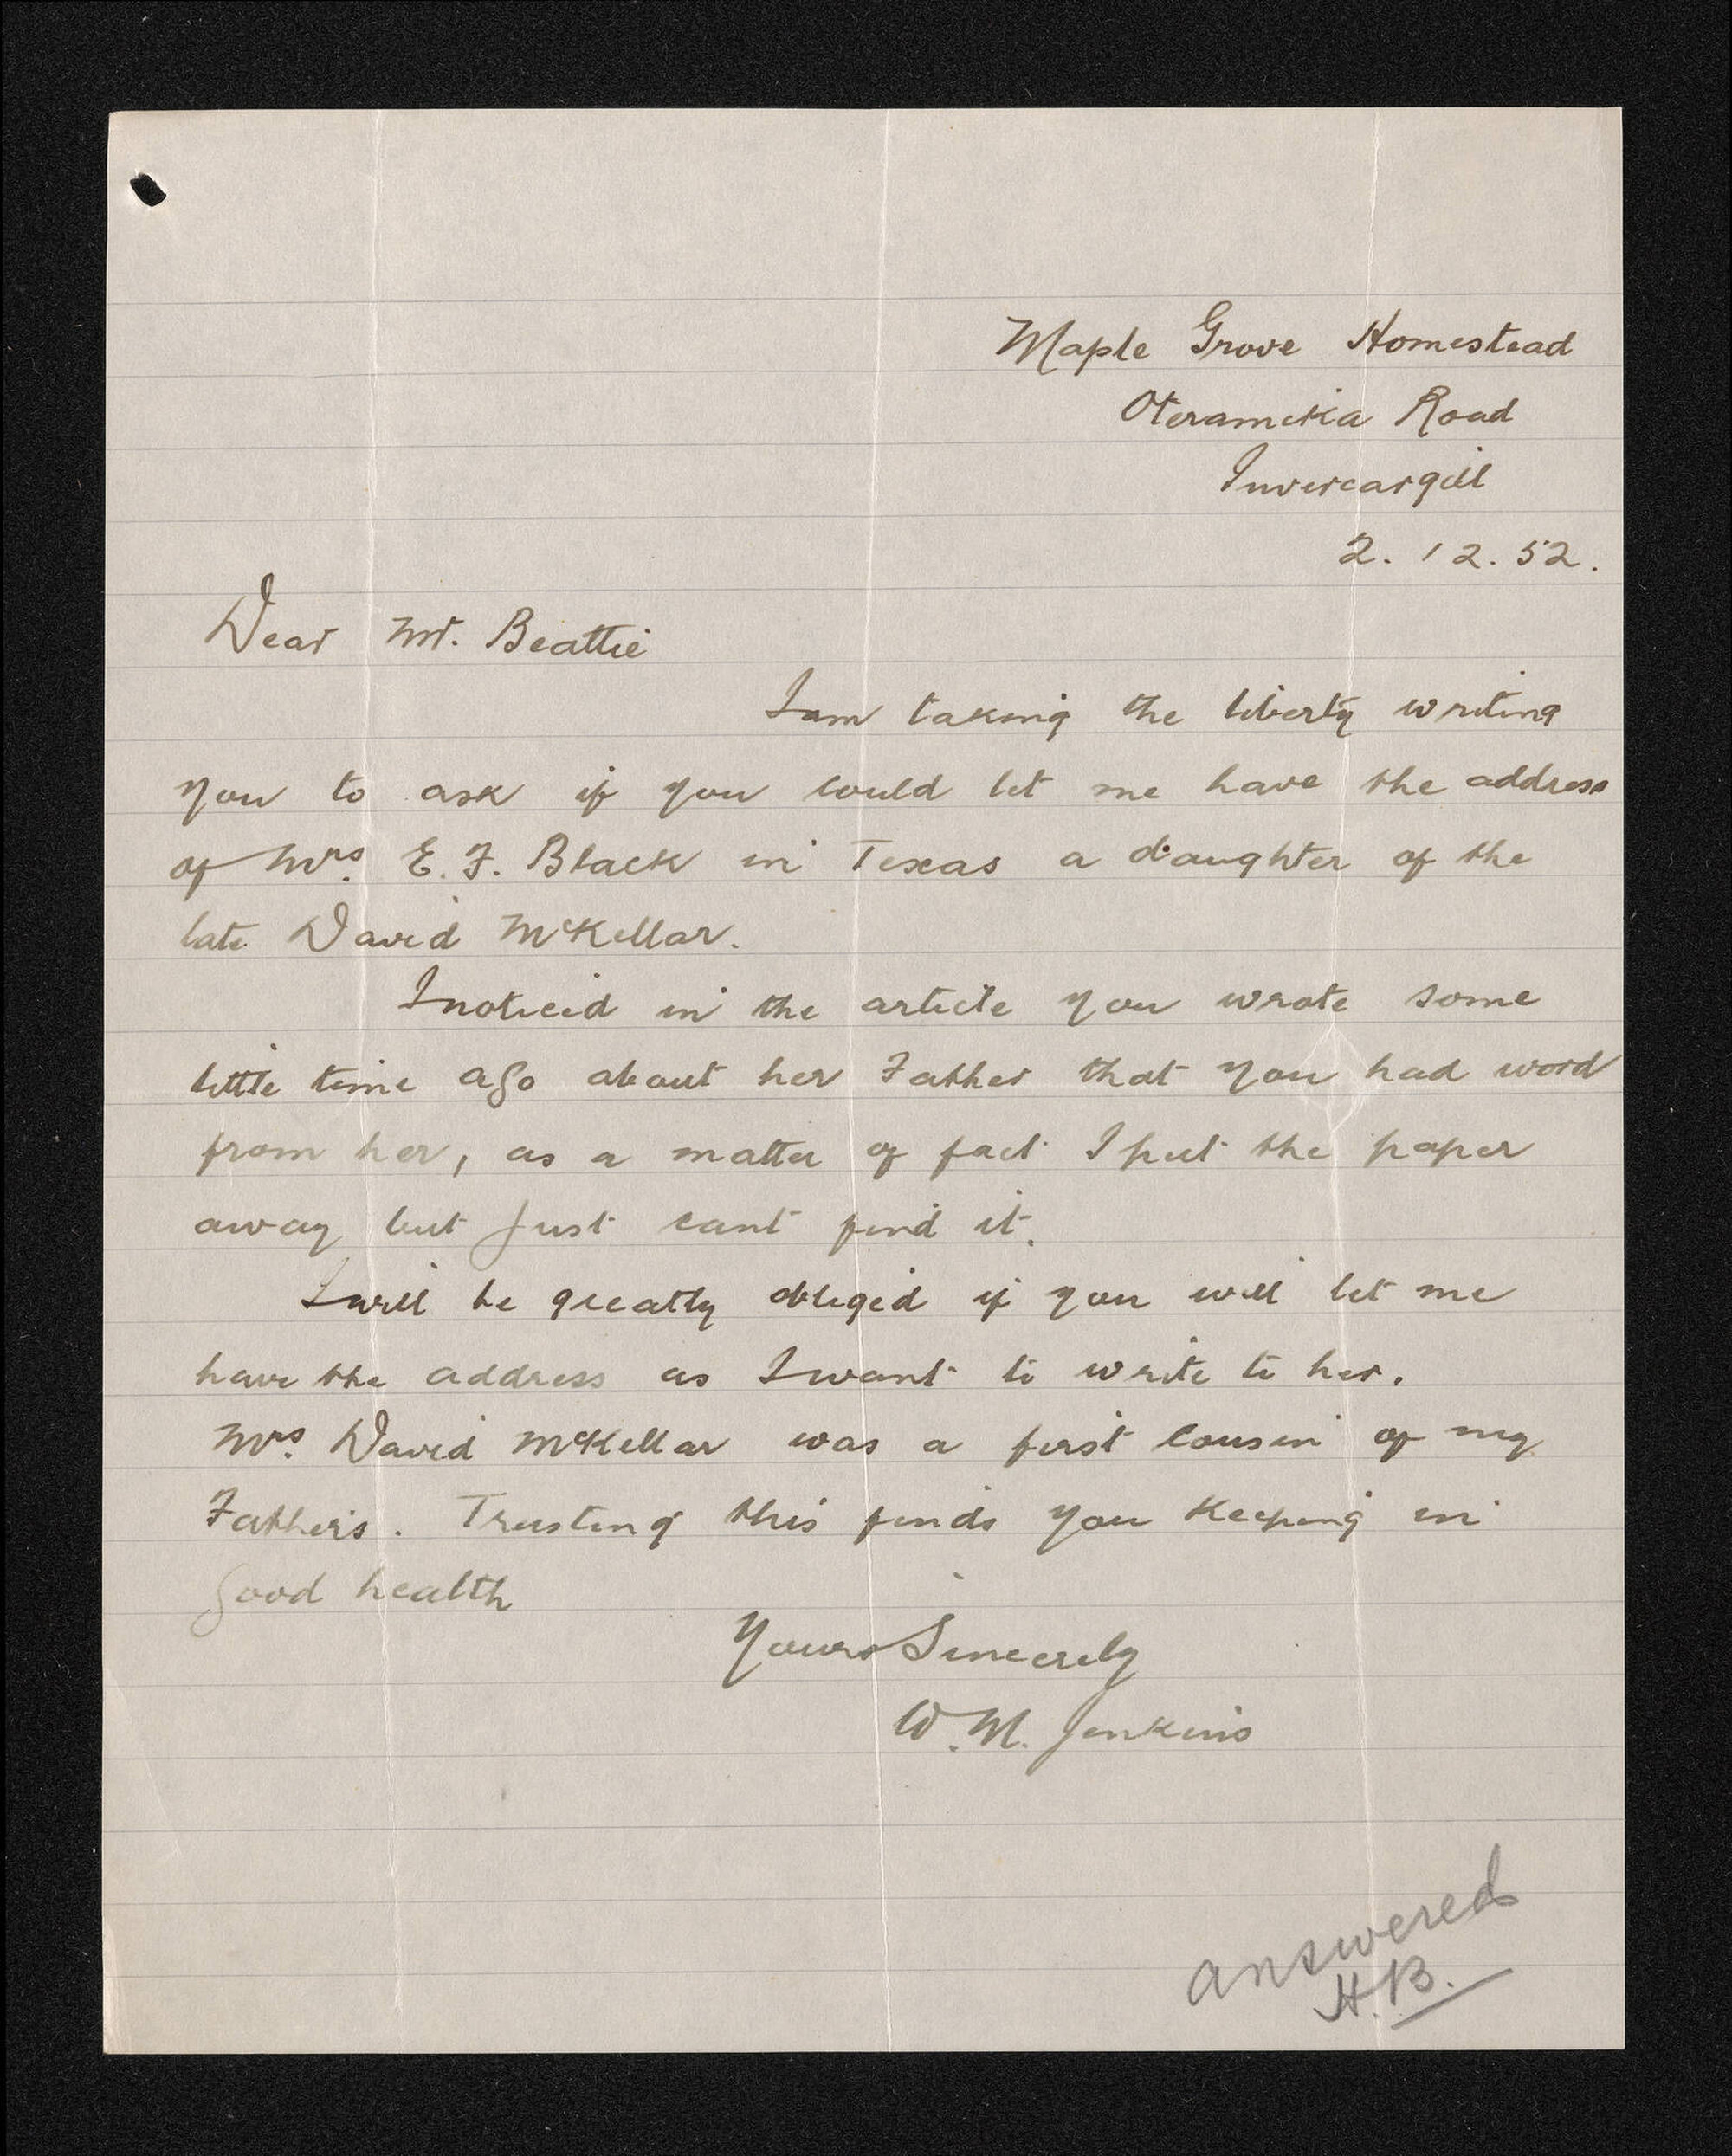 Maple Grove Homestead
Oteramika Road
Invercargill
2. 12. 52.
Dear Mr. Beattie
I am taking the liberty writing
you to ask if you could let me have the address
of Mrs. E. F. Black in Texas a daughter of the
late David McKellar.
I noticed in the article you wrote some
little time ago about her Father that you had word
from her, as a matter of fact I put the paper
away but just cant find it.
I will be greatly obliged if you will let me
have the address as I want to write to her.
Mrs. David McKellar was a first cousin of my
Father's. Trusting this finds you keeping in
good health
Yours Sincerely
W. M. Jenkins
answered
H.B.